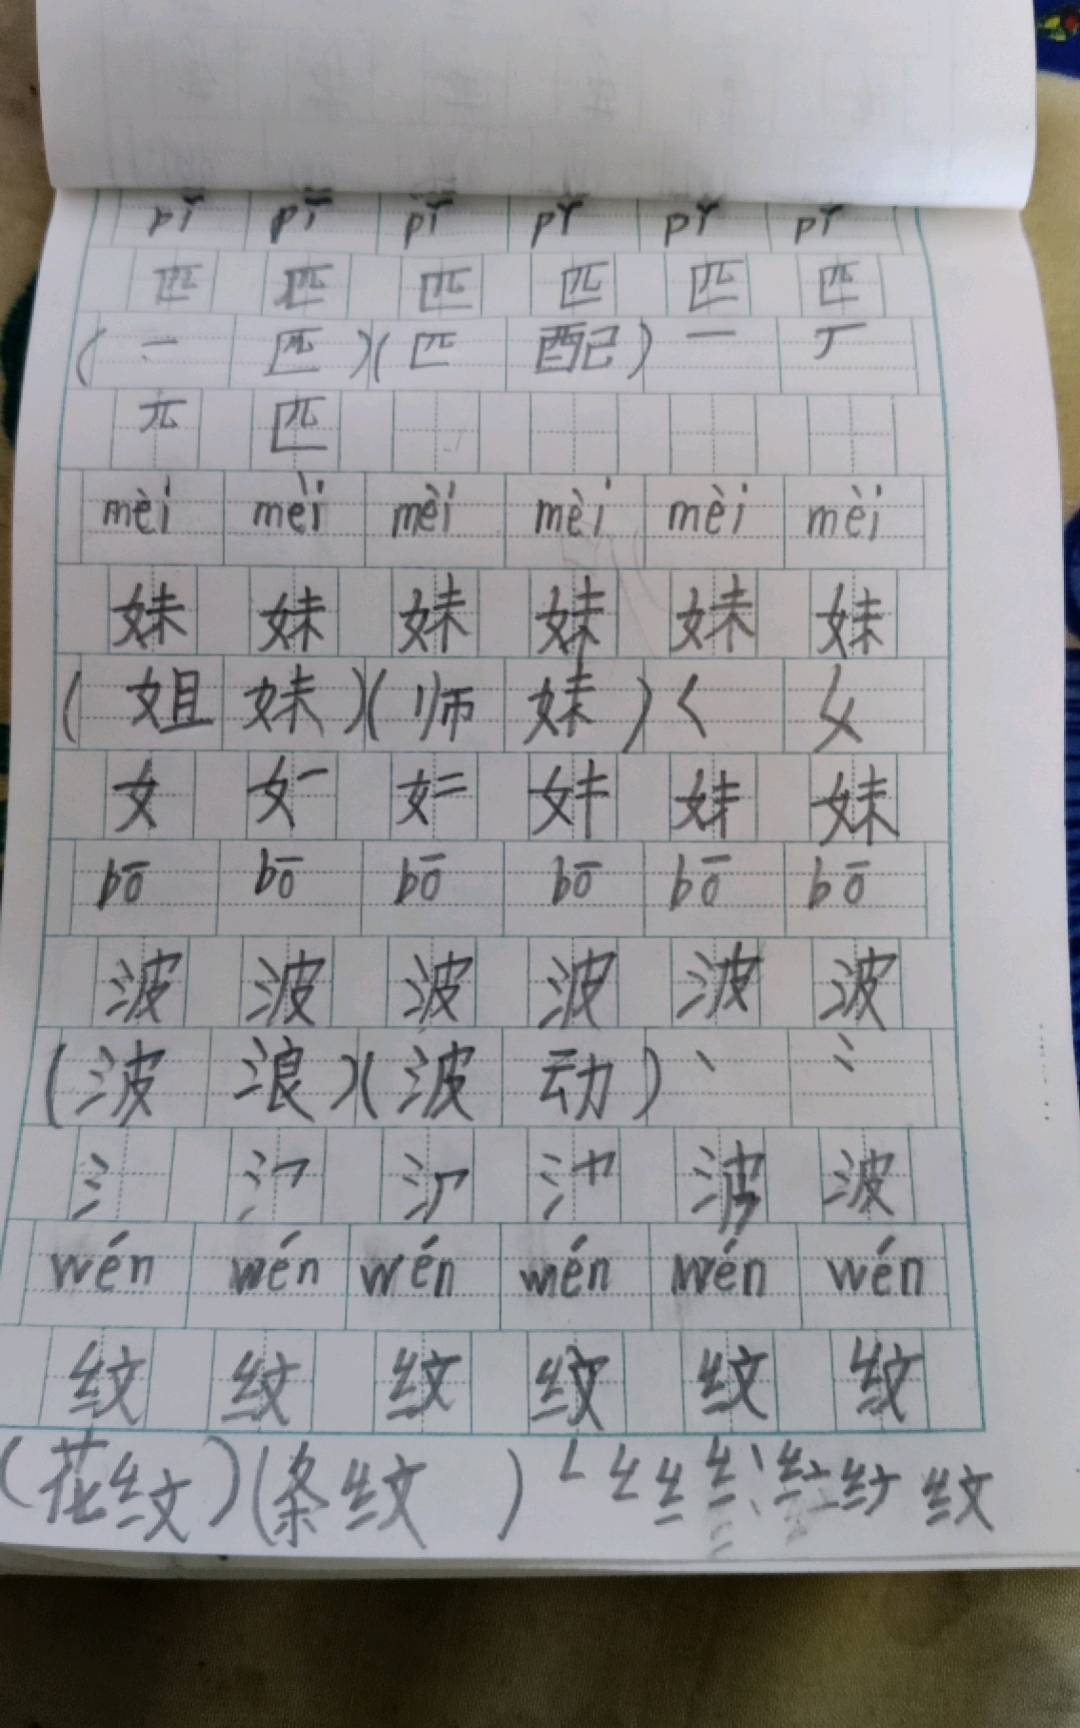 pǐ pǐ pǐ pǐ pǐ pǐ
匹 匹 匹 匹 匹 匹
(一匹)(匹配) 一 丆
兀 匹
mèi mèi mèi mèi mèi mèi
妹 妹 妹 妹 妹 妹
(姐妹)(师妹) ㄑ 女
女 女一 女二 妹 妹
bō bō bō bō bō bō
波 波 波 波 波 波
(波浪)(波动) 丶 冫
氵 波
wén wén wén wén wén wén
纹 纹 纹 纹 纹 纹
(花纹)(条纹) 纟 纹